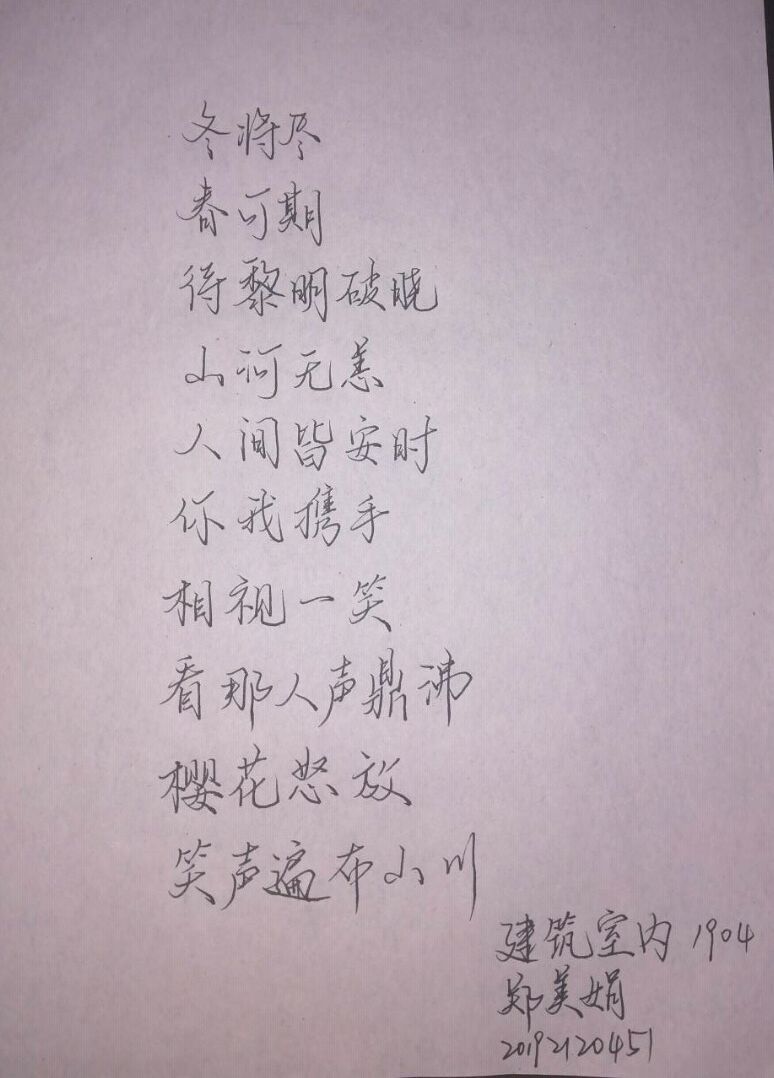 冬将尽
春可期
待黎明破晓
山河无恙
人间皆安时
你我携手
相视一笑
看那人声鼎沸
樱花怒放
笑声遍布山川
建筑室内 1904
郑美娟
20192120451